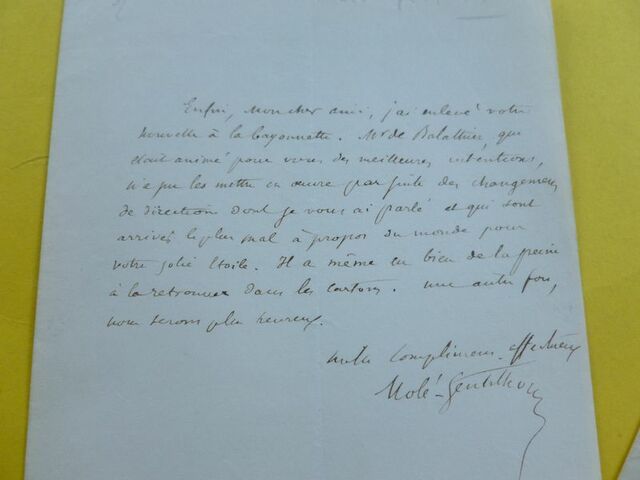 Enfin, mon cher ami, j'ai enlevé votre
nouvelle à la bayonnette. Mr de Balathier, qui
était animé pour vous des meilleures intentions,
n'a pu les mettre en œuvre par suite des changemens
de direction dont je vous ai parlé et qui sont
arrivés le plus mal à propos du monde pour
votre jolie Etoile. Il a même eu bien de la peine
à la retrouver dans les cartons. Une autre fois,
nous serons plus heureux.
Mille complimens affectueux
Molé-Gentilhomme